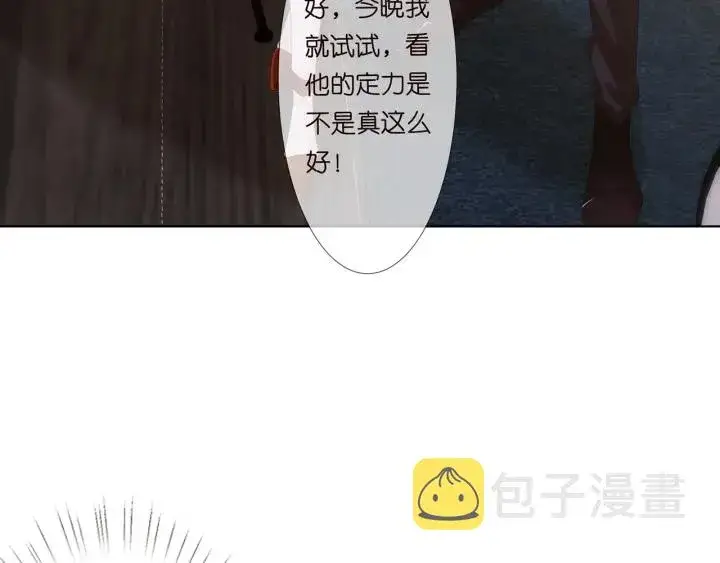 好，今晚我
就试试，看
他的定力是
不是真这么
好！
包子漫畫